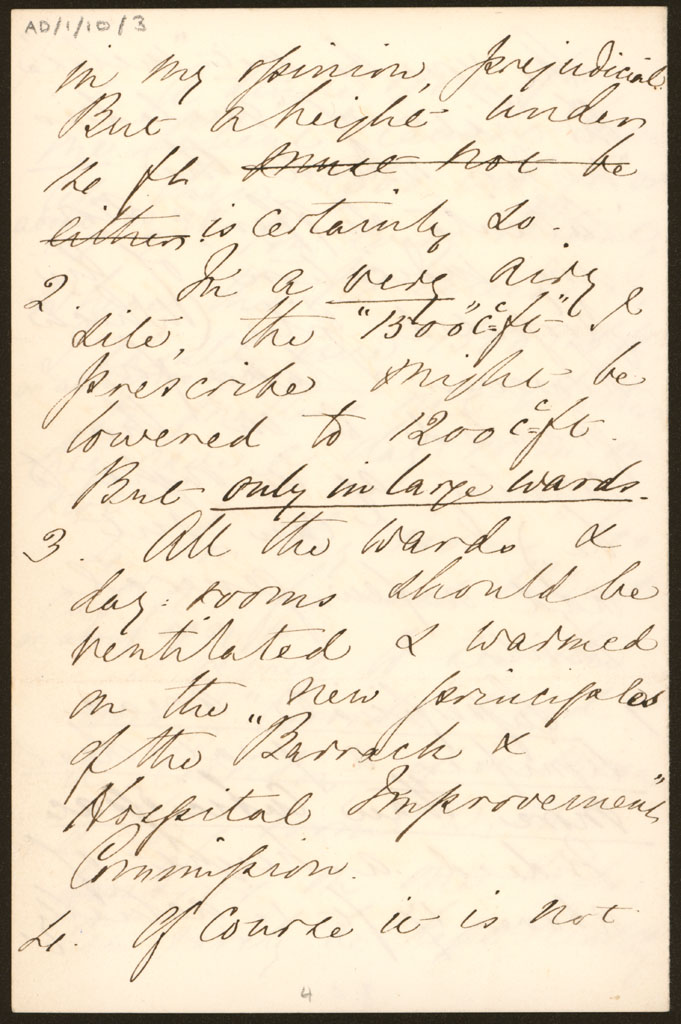 AD/1/10/3
in my opinion, prejudicial.
But a height under
the ft must not be
either is certainly so.
2. In a very airy
site, the "1500" c. ft" I
prescribe might be
lowered to 1200 c. ft.
But only in large wards.
3. All the wards &
day-rooms should be
ventilated & warmed
on the new principles
of the "Barrack &
Hospital Improvement"
Commission.
4. Of course it is not
4